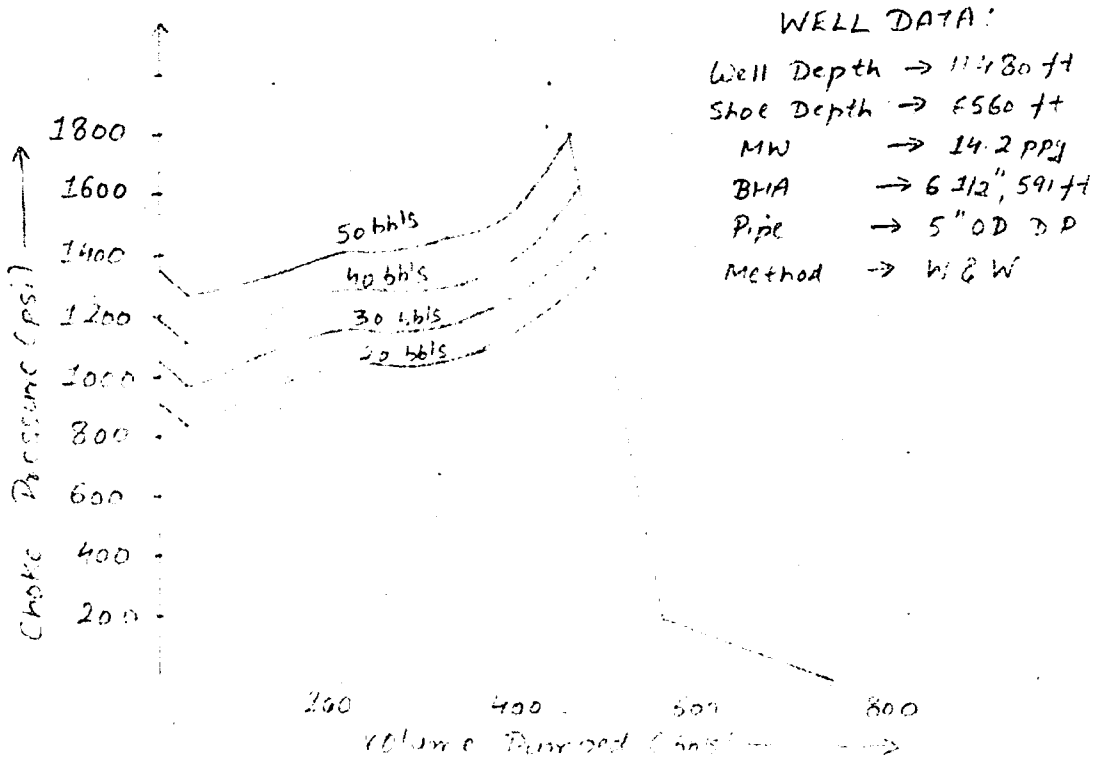 WELL DATA:
Well Depth → 11480 ft
Shoe Depth → 6560 ft
MW → 14.2 ppg
BHA → 6 1/2", 591 ft
Pipe → 5" OD DP
Method → W & W
1800
1600
1400
1200
1000
800
600
400
200
Choke Pressure (psi)
50 bbls
40 bbls
30 bbls
20 bbls
200 400 600 800
Volume Pumped (bbls)